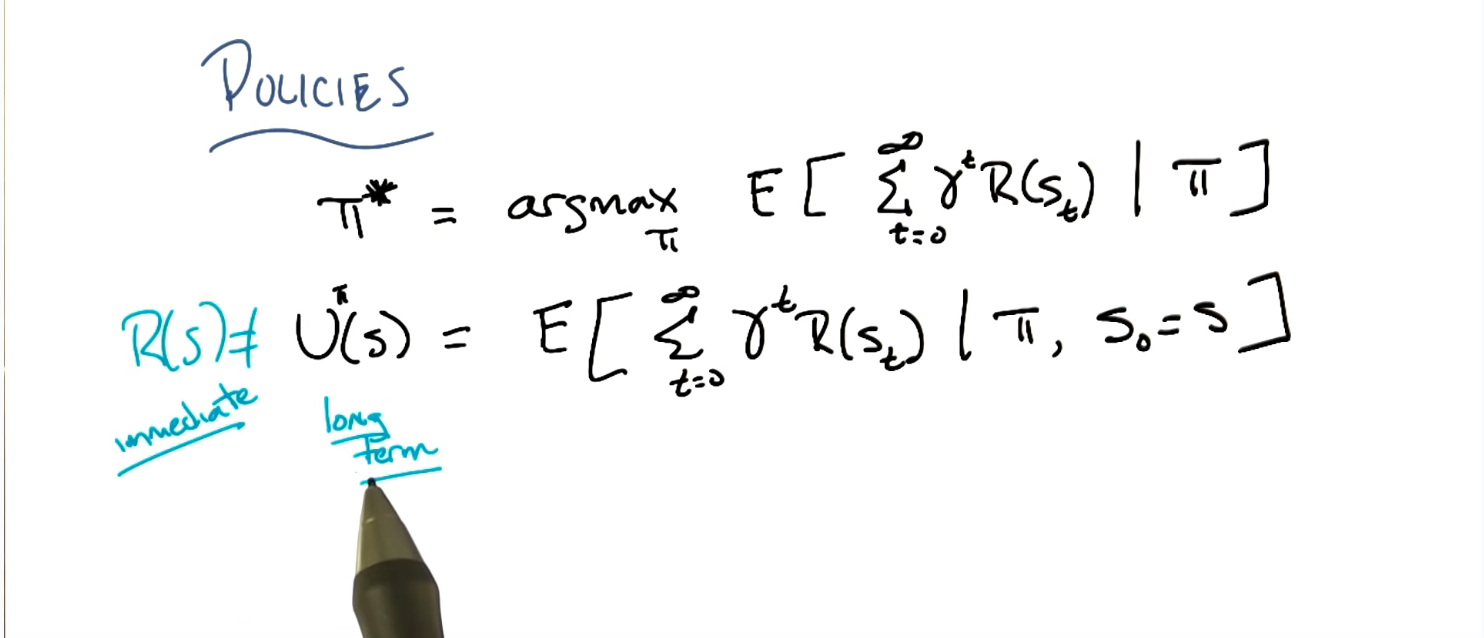 POLICIES
π* = argmax_π E[ ∑_{t=0}^{∞} γ^t R(s_t) | π ]
R(s) ≠ U^π(s) = E[ ∑_{t=0}^{∞} γ^t R(s_t) | π, s_0 = s ]
immediate long
term